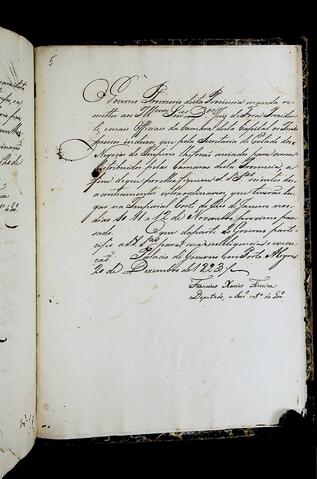 5
O Governo Provizorio desta Provincia manda re
metter ao Illmo Snr Dor Juiz de Fora Presiden
te, e mais Officiaes da Camara desta Capital os Im
pressos incluzos que pela Secretaria de Estado dos
Negocios do Imperio lhe foi mandado para serem
destribuidos pelas Camaras desta Provincia a
fim de que nella fiquem
acontecimento extraordinario, que teve lu
gar na Imperial Corte do Rio de Janeiro nos
dias 11 e 12 de Novembro proximo pas
sado. O que da parte do Governo parti
cipo a V. Sas para sua intelligencia e execu
ção. Palacio do Governo em Porto Alegre
20 de Dezembro de 1823./
Francisco Xavier Ferreira
Deputado, e Secro